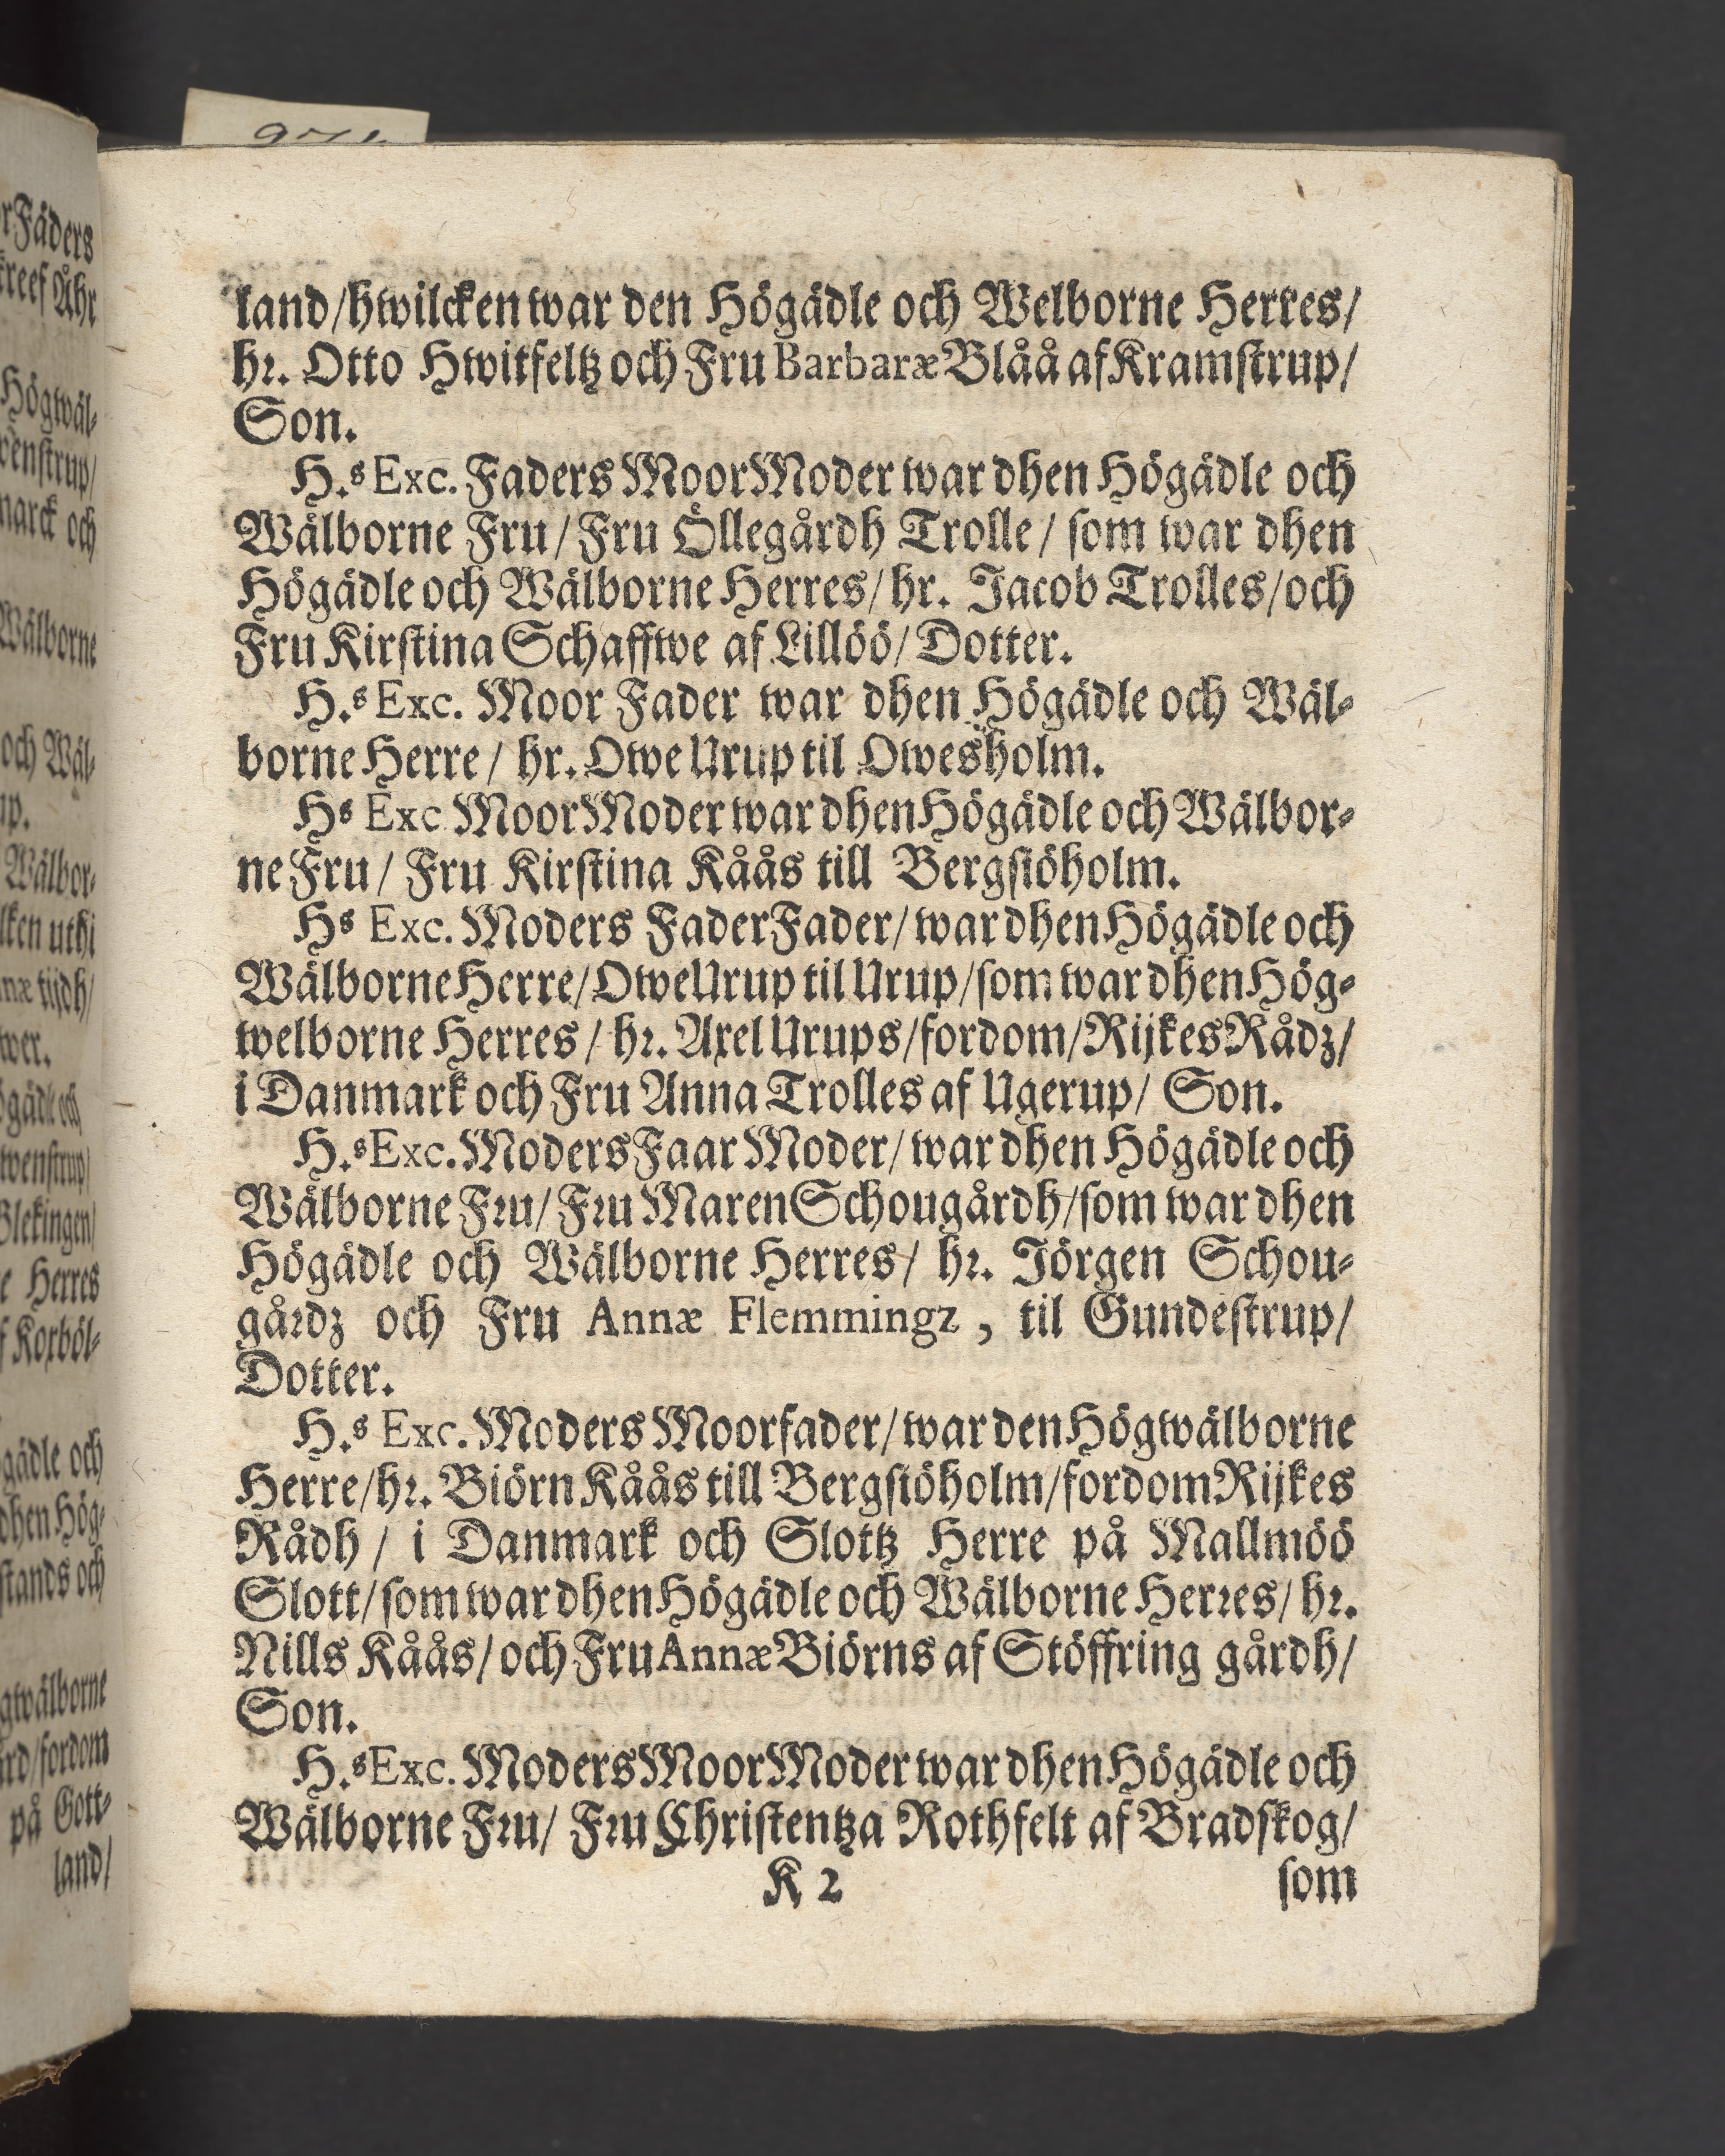 land/hwilcken war den Högädle och Welborne Herres/
hr. Otto Hwitfeltz och Fru Barbaræ Blåå af Kramſtrup/
Son.
H.s Exc. Faders MoorModer war dhen Högädle och
Wälborne Fru/ Fru Öllegårdh Trolle/ ſom war dhen
Högädle och Wälborne Herres/ hr. Jacob Trolles/och
Fru Kirſtina Schafſwe af Lillöö/ Dotter.
H.s Exc. Moor Fader war dhen Högädle och Wäl-
borne Herre/ hr. Owe Urup til Owesholm.
Hs Exc MoorModer war dhen Högädle och Wälbor-
ne Fru/ Fru Kirſtina Kåås till Bergſiöholm.
Hs Exc. Moders FaderFader/ war dhen Högädle och
Wälborne Herre/ Owe Urup til Urup/ ſom war dhen Hög-
welborne Herres/ hr. Axel Urups/fordom/Rijkes Rådz/
i Danmark och Fru Anna Trolles af Ugerup/ Son.
H.s Exc. Moders Faar Moder/ war dhen Högädle och
Wälborne Fru/ Fru Maren Schougårdh/ſom war dhen
Högädle och Wälborne Herres/ hr. Jörgen Schou-
gårdz och Fru Annæ Flemmingz, til Gundeſtrup/
Dotter.
H.s Exc. Moders Moorfader/ war den Högwälborne
Herre/hr. Biörn Kåås till Bergſiöholm/fordom Rijkes
Rådh/ i Danmark och Slottz Herre på Mallmöö
Slott/ ſom war dhen Högädle och Wälborne Herres/ hr.
Nills Kåås/ och Fru Annæ Biörns af Stöffring gårdh/
Son.
H.s Exc. Moders MoorModer war dhen Högädle och
Wälborne Fru/ Fru Chriſtentza Rothfelt af Bradſkog/
K 2 ſom